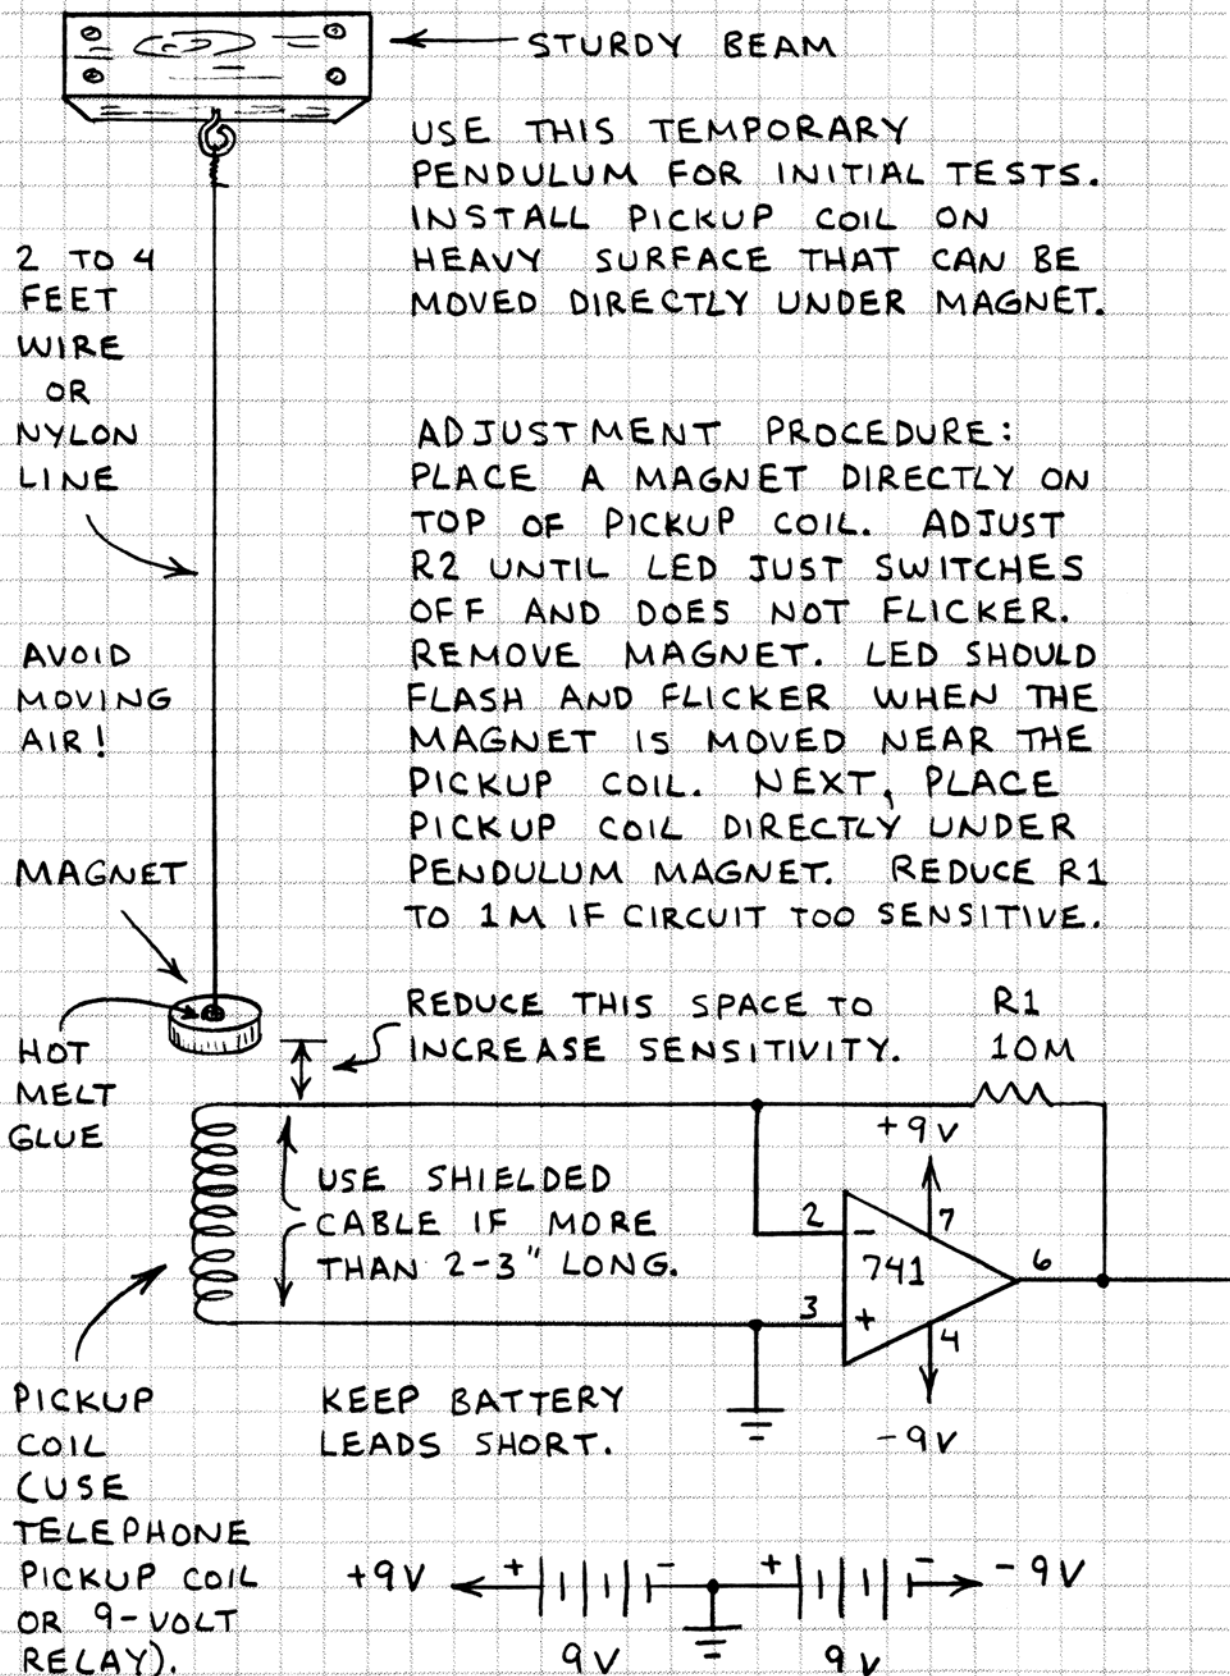 STURDY BEAM
USE THIS TEMPORARY
PENDULUM FOR INITIAL TESTS.
INSTALL PICKUP COIL ON
HEAVY SURFACE THAT CAN BE
MOVED DIRECTLY UNDER MAGNET.
2 TO 4
FEET
WIRE
OR
NYLON
LINE
ADJUSTMENT PROCEDURE:
PLACE A MAGNET DIRECTLY ON
TOP OF PICKUP COIL. ADJUST
R2 UNTIL LED JUST SWITCHES
OFF AND DOES NOT FLICKER.
REMOVE MAGNET. LED SHOULD
FLASH AND FLICKER WHEN THE
MAGNET IS MOVED NEAR THE
PICKUP COIL. NEXT, PLACE
PICKUP COIL DIRECTLY UNDER
PENDULUM MAGNET. REDUCE R1
TO 1M IF CIRCUIT TOO SENSITIVE.
AVOID
MOVING
AIR!
MAGNET
HOT
MELT
GLUE
REDUCE THIS SPACE TO
INCREASE SENSITIVITY.
R1
10M
USE SHIELDED
CABLE IF MORE
THAN 2-3" LONG.
+9V
2
-
7
741
6
3
+
4
-9V
PICKUP
COIL
(USE
TELEPHONE
PICKUP COIL
OR 9-VOLT
RELAY).
KEEP BATTERY
LEADS SHORT.
+9V
+
-
+
-
-9V
9V
9V